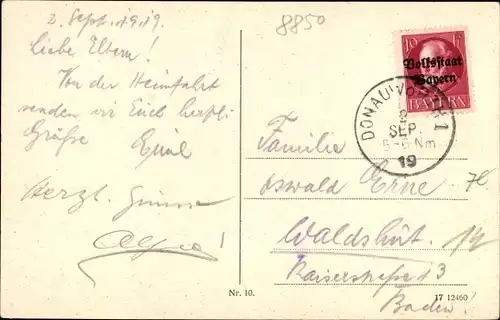 2. Sept. 1919.
Liebe Eltern!
Von der Heimfahrt
senden wir Euch herzl.
Grüße Emil
Herzl. Grüsse
8850
10
Volksstaat
Bayern
BAYERN
DONAUWÖRTH 1
2
SEP.
5-6 Nm
19
Familie
Oswald Erne
Waldshut.
Kaiserstraße 13
Baden
Nr. 10.
17 12460